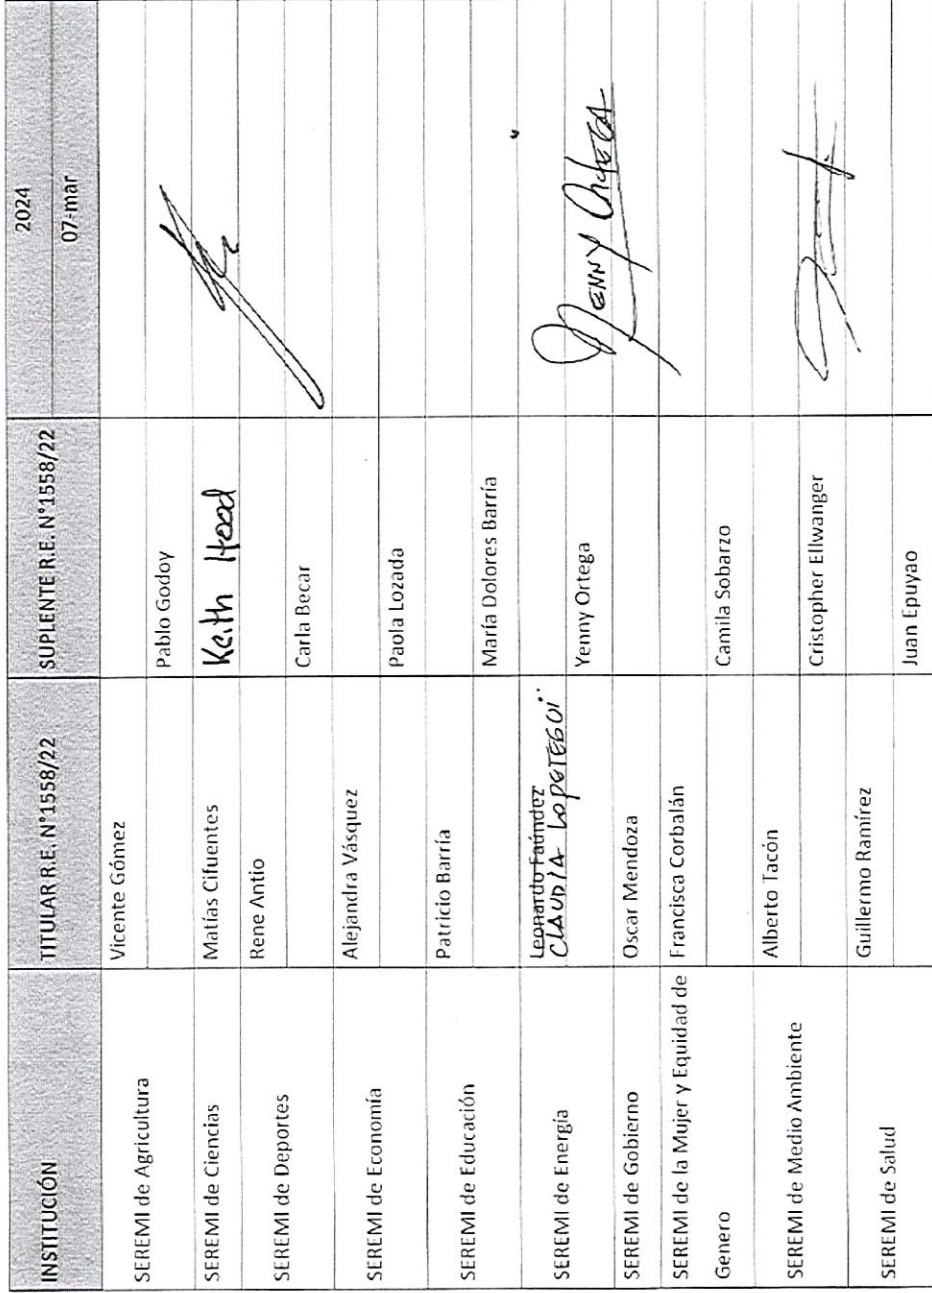 INSTITUCIÓN TITULAR R.E. N°1558/22 SUPLENTE R.E. N°1558/22 2024
07-mar
SEREMI de Agricultura Vicente Gómez
Pablo Godoy
SEREMI de Ciencias Matías Cifuentes Keith Hood
SEREMI de Deportes Rene Antio
Carla Becar
SEREMI de Economía Alejandra Vásquez
Paola Lozada
SEREMI de Educación Patricio Barría
María Dolores Barría
SEREMI de Energía Leonardo Faúndez
CLAUDIA LOPETEGUI Yenny Ortega YENNY ORTEGA
SEREMI de Gobierno Oscar Mendoza
SEREMI de la Mujer y Equidad de Francisca Corbalán
Genero Camila Sobarzo
SEREMI de Medio Ambiente Alberto Tacón
Cristopher Ellwanger
SEREMI de Salud Guillermo Ramírez
Juan Epuyao